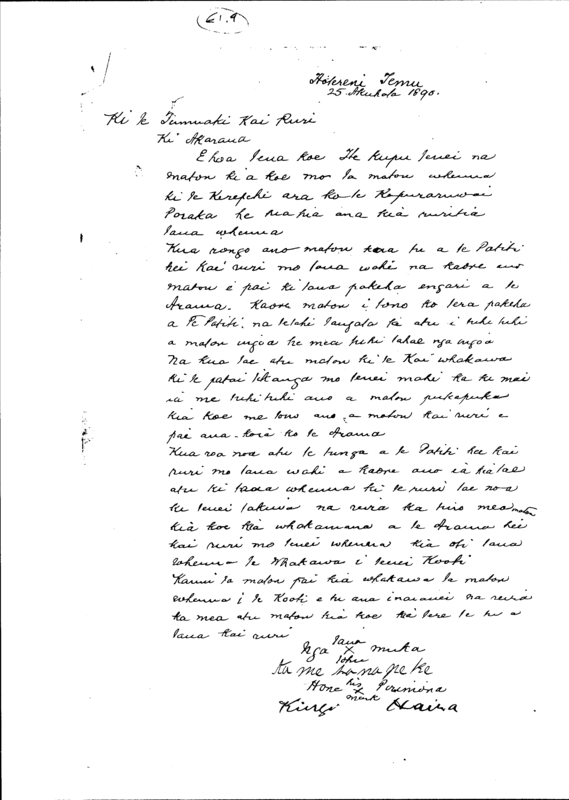 61.9
Hotereni Temu
25 Akuhata 1890.
Ki te Tumuaki Kai Ruri
Ki Akarana
E hoa tena koe He kupu tenei na
matou ki a koe mo ta matou whenua
ki te Kerepehi ara ko te Kopuraruwai
Poraka he hiahia ana kia ruritia
taua whenua
Kua rongo ano matou kua tu a te Patiti
hei kai ruri mo taua wahi na kaore ano
matou e pai ki taua pakeha engari a te
Arama. Kaore matou i tono ko tera pakeha
a Te Patiti, na tetahi tangata ke atu i tuhituhi
a matou ingoa he mea tuhi tahae nga ingoa
Na kua tae atu matou ki te Kai whakawa
ki te patai tikanga mo tenei mahi ka ki mai
ia me tuhituhi ano a matou pukapuka
kia koe me tono ano a matou kai ruri e
pai ana koia ko te Arama
Kua roa noa atu te tunga a te Patiti hei kai
ruri mo taua wahi a kaore ano ia kia tae
atu ki taua whenua ki te ruri tae noa
ki tenei takiwa na reira ka inoi matou
kia koe kia whakamana a te Arama hei
kai ruri mo tenei whenua kia oti taua
whenua te whakawa i tenei Kooti
Kanui ta matou pai kia whakawa ta matou
whenua i te Kooti e tu ana inaianei na reira
ka mea atu matou kia koe kia tere te tu a
taua kai ruri
Nga taua x tohu muka
Ka me hanapeke
Hone his x mark Perimona
Kiingi Haira